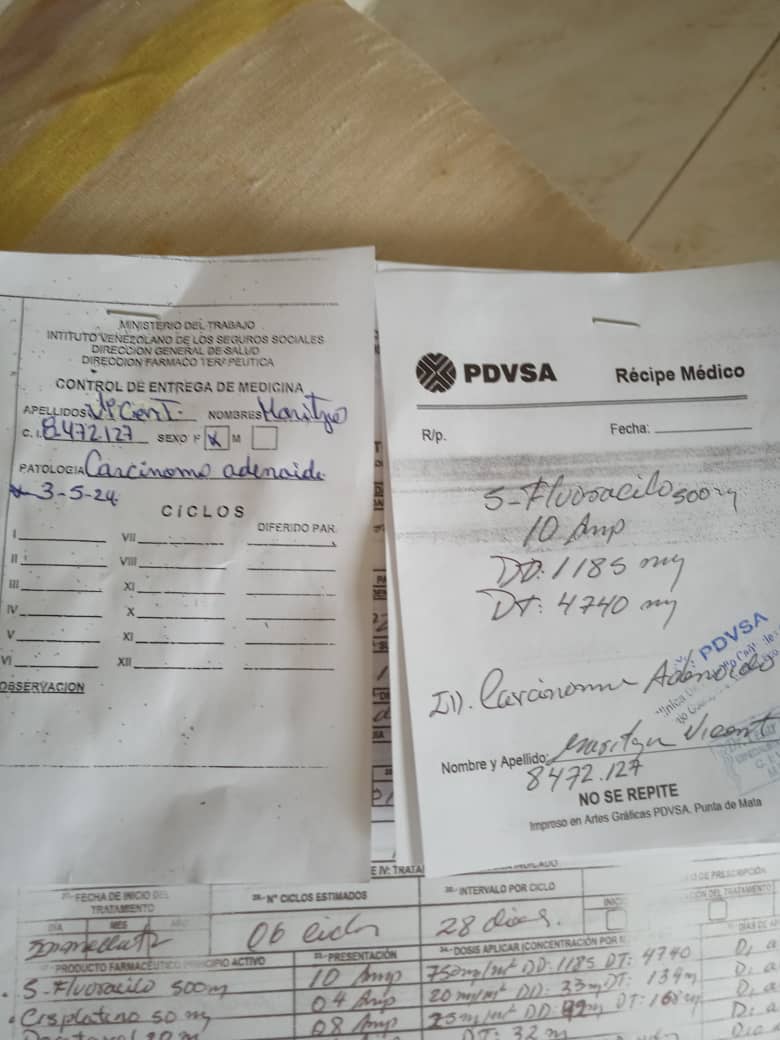 MINISTERIO DEL TRABAJO
INTITUTO VENEZOLANO DE LOS SEGUROS SOCIALES
DIRECCION GENERAL DE SALUD
DIRECCION FARMACO TERAPEUTICA
CONTROL DE ENTREGA DE MEDICINA
APELLIDOS Vicent. NOMBRES Maritza
C. I. 8472.127 SEXO F X M
PATOLOGIA Carcinoma adenoide
3-5-24
CICLOS
DIFERIDO PAR
I VII
II VIII
III XI
IV X
V XI
VI XII
OBSERVACION
PDVSA Récipe Médico
R/p. Fecha:
5-Fluoracilo 500mg
10 Amp
DD: 1185 mg
DT: 4740 mg
ID. Carcinoma Adenoido
PDVSA
Nombre y Apellido: Vicent
8472.127
NO SE REPITE
Impreso en Artes Gráficas PDVSA, Punta de Mata
E IV: TRATA
FECHA DE INICIO DEL TRATAMIENTO
Nº CICLOS ESTIMADOS
INTERVALO POR CICLO
DIA MES AÑO
06 ciclos
28 dias.
PRODUCTO FARMACEUTICO PRINCIPIO ACTIVO
PRESENTACIÓN
DOSIS APLICAR (CONCENTRACIÓN POR
5-Fluoracilo 500m 10 Amp 750mg/m² DD: 1185 DT: 4740
Cisplatino 50 mg 04 Amp 20mg/m² DD: 33m DT: 134m
08 Amp 25mg/m² DD: 42m DT: 168mg
DT: 32 m